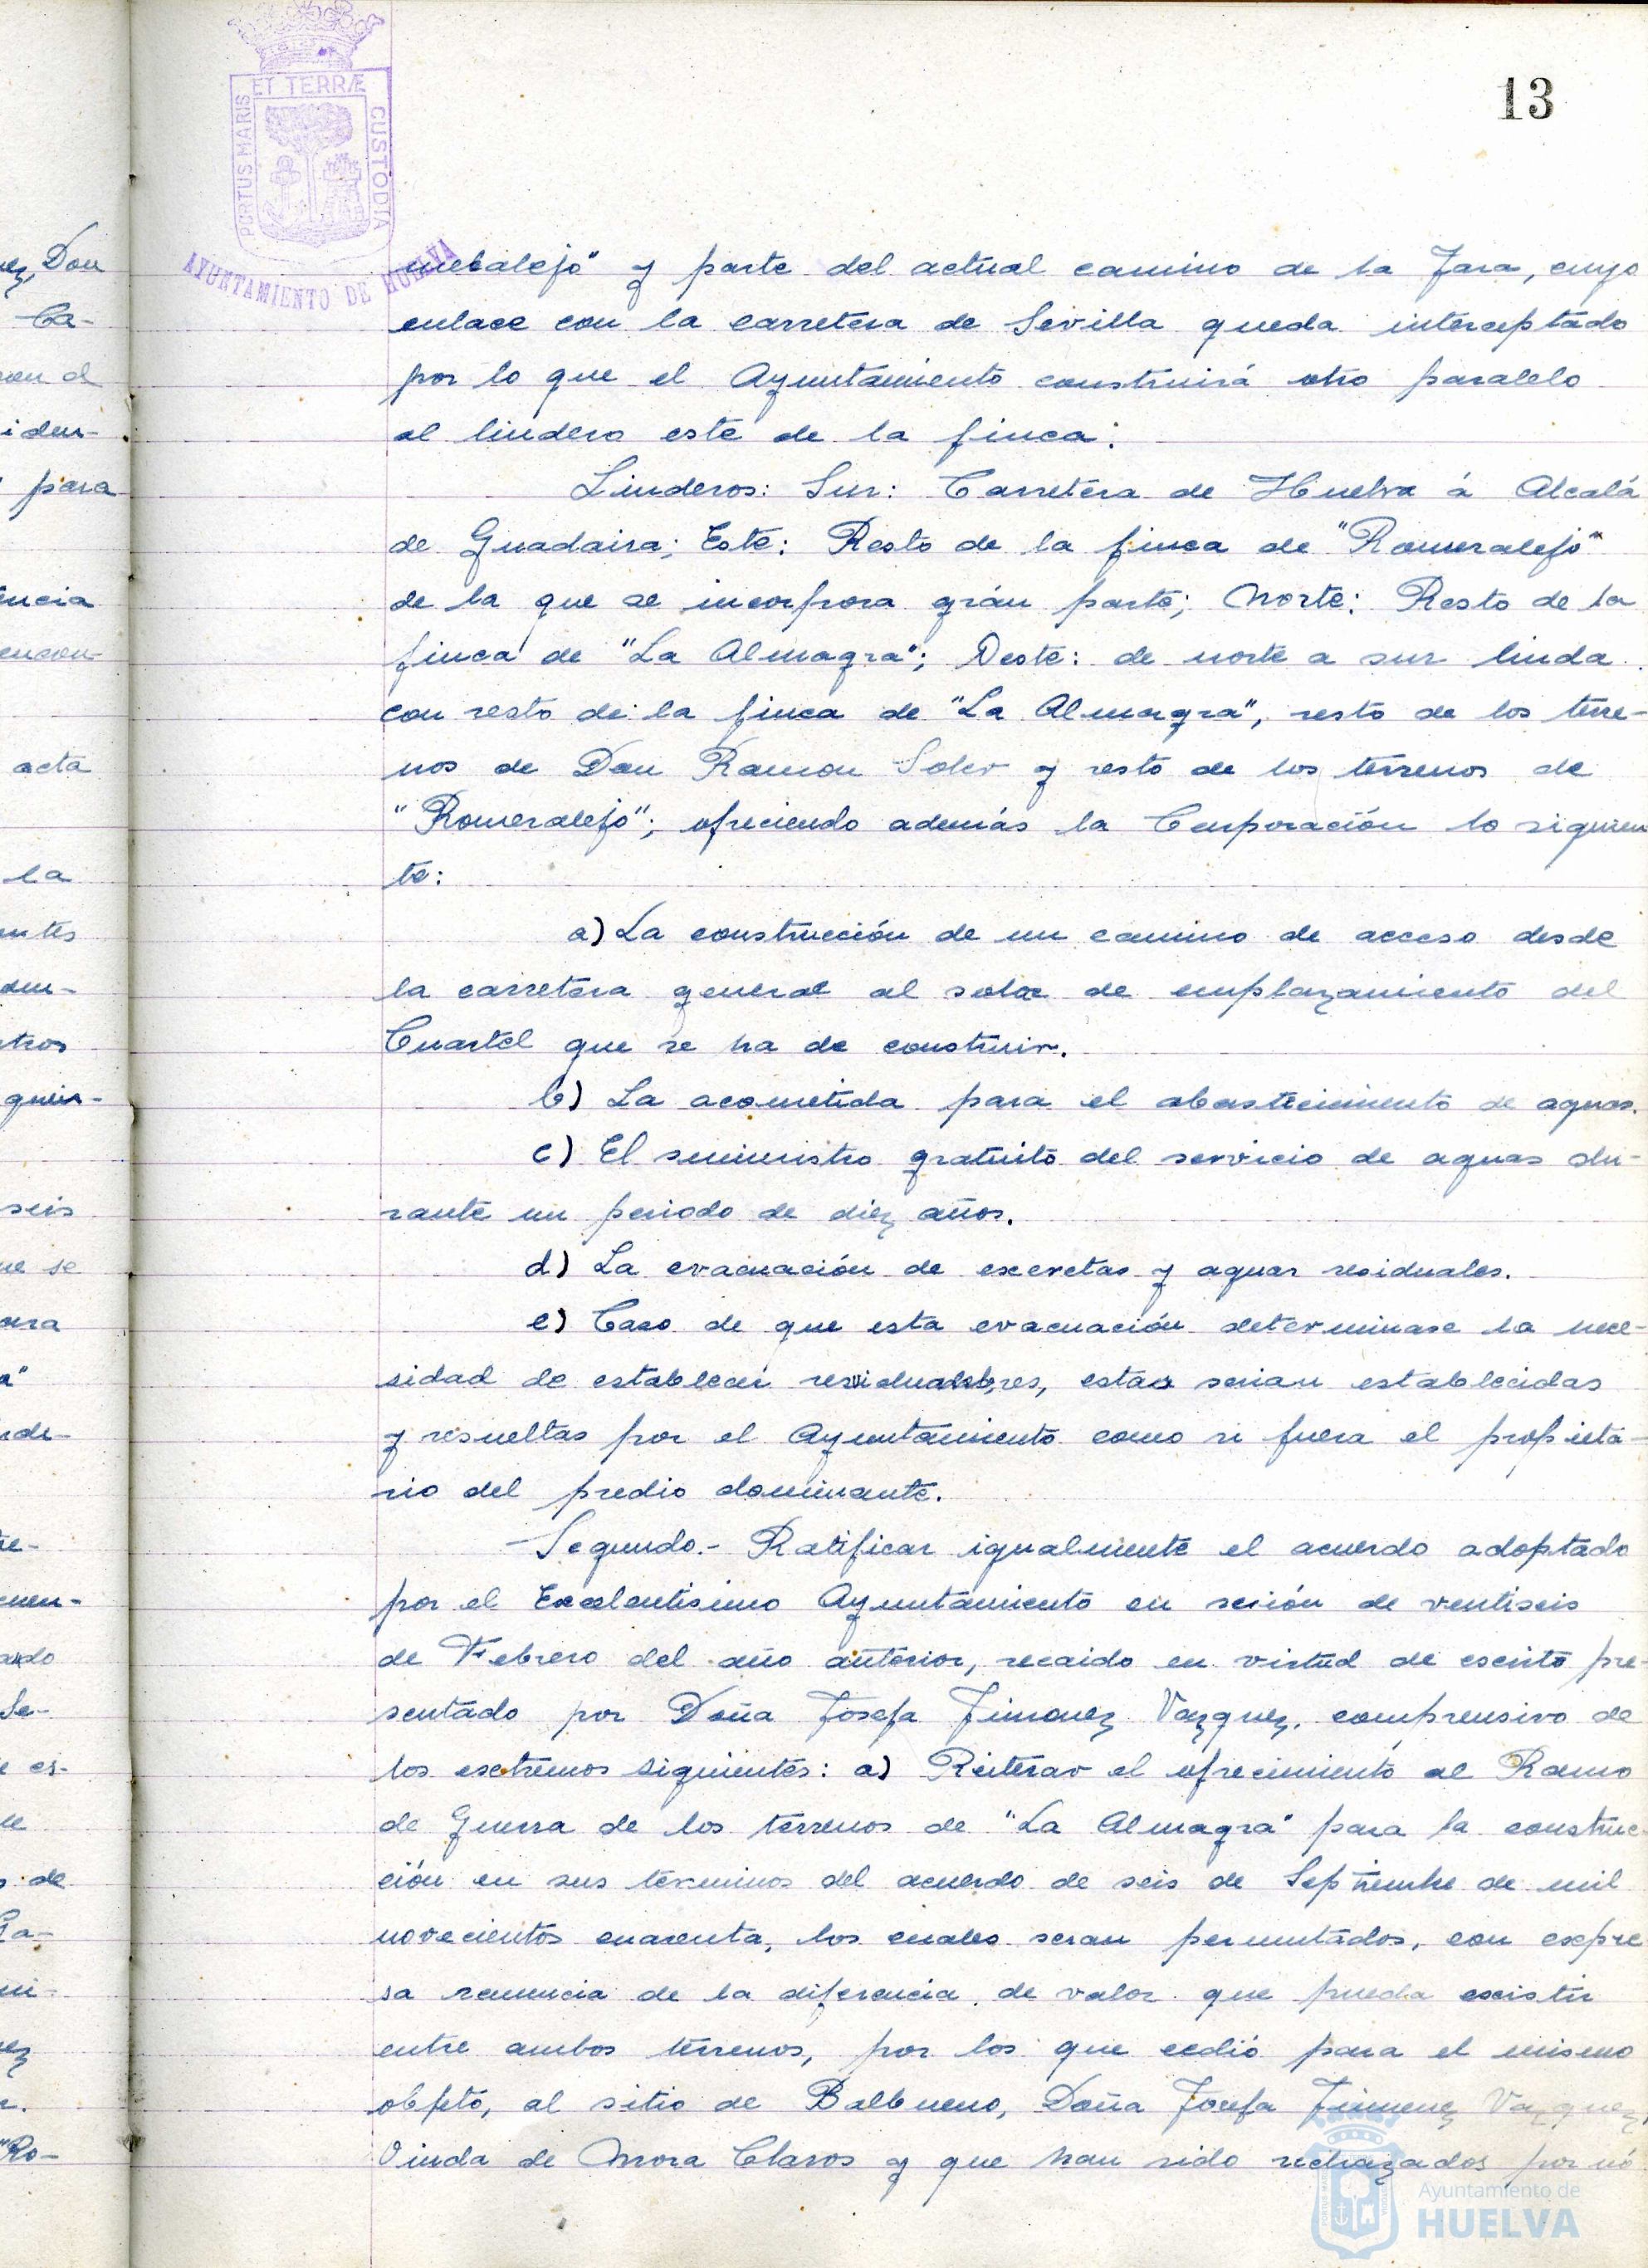 13
PORTUS MARIS ET TERRÆ CUSTODIA
AYUNTAMIENTO DE HUELVA
meralejo" y parte del actual camino de la Jara, cuyo
enlace con la carretera de Sevilla queda interceptado
por lo que el Ayuntamiento construirá otro paralelo
al lindero este de la finca:
Linderos: Sur: Carretera de Huelva á Alcalá
de Guadaira; Este: Resto de la finca de "Romeralejo"
de la que se incorpora grán parte; Norte: Resto de la
finca de "La Almagra"; Oeste: de norte a sur linda
con resto de la finca de "La Almagra", resto de los terre-
nos de Don Ramon Soler y resto de los terrenos de
"Romeralejo"; ofreciendo además la Corporación lo siguien
te:
a) La construcción de un camino de acceso desde
la carretera general al solar de emplazamiento del
Cuartel que se ha de construir.
b) La acometida para el abastecimiento de aguas.
c) El suministro gratuito del servicio de aguas du-
rante un periodo de diez años.
d) La evacuación de excretas y aguas residuales.
e) Caso de que esta evacuación determinase la nece-
sidad de establecer estas serian establecidas
y resueltas por el Ayuntamiento como si fuera el propieta-
rio del predio dominante.
Segundo.- Ratificar igualmente el acuerdo adoptado
por el Excelentisimo Ayuntamiento en sesión de ventiseis
de Febrero del año anterior, recaido en virtud de escrito pre-
sentado por Doña Josefa Jimenez Vazquez, comprensivo de
los extremos siguientes: a) Reiterar el ofrecimiento al Ramo
de Guerra de los terrenos de "La Almagra" para la construc-
ción en sus terminos del acuerdo de seis de Septiembre de mil
novecientos cuarenta, los cuales seran permutados, con expre
sa renuncia de la diferencia de valor que pueda existir
entre ambos terrenos, por los que cedió para el mismo
objeto, al sitio de Balbueno, Doña Josefa Jimenez Vazquez,
Viuda de Mora Claros y que han sido rechazados por nó
Ayuntamiento de
HUELVA